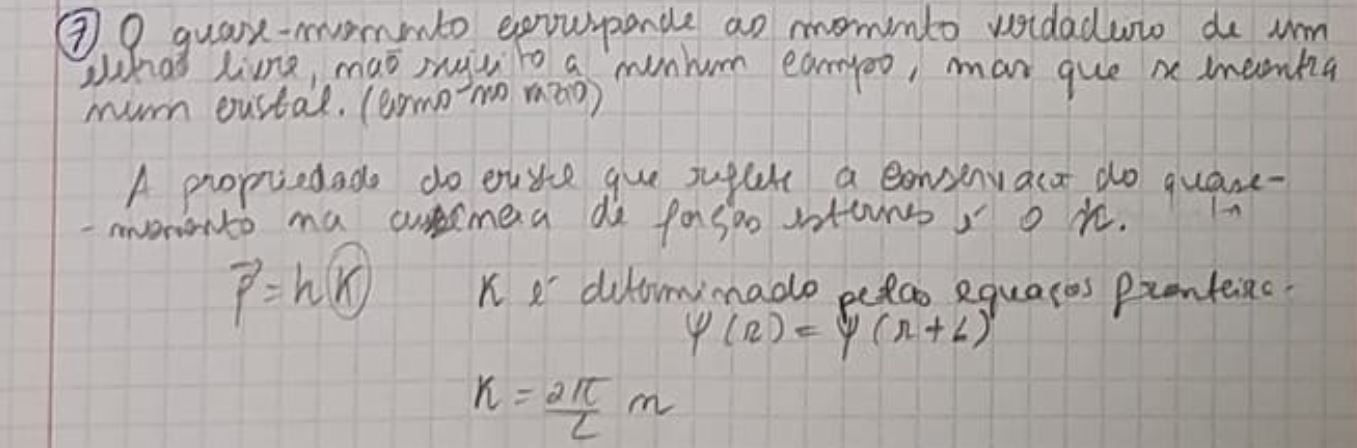 7 O quase-momento corresponde ao momento verdadeiro de um
eletrão livre, não sujeito a nenhum campo, mas que se encontra
num cristal. (como no vazio)
A propriedade do cristal que reflete a conservação do quase-
-momento na ausência de forças externas é o k.
P⃗ = hK K é determinado pelas equações fronteira.
Ψ(r) = Ψ(r+L)
K = 2π/L n